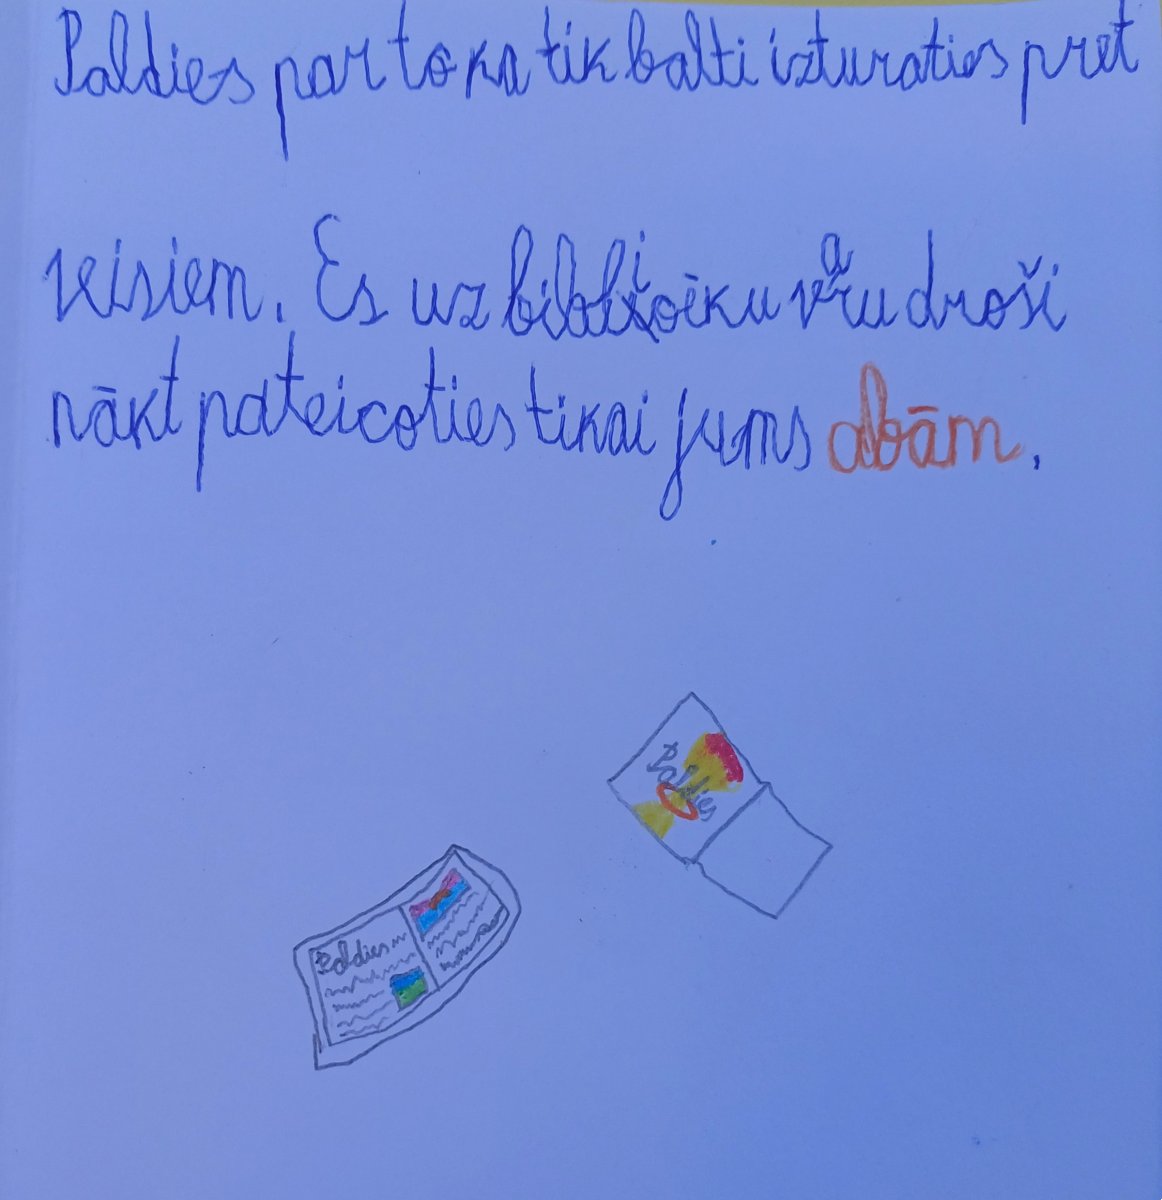 Paldies par to ka tik balti izturaties pret
visiem. Es uz bibliotēku varu droši
nākt pateicoties tikai jums abām.
Paldies
Paldies